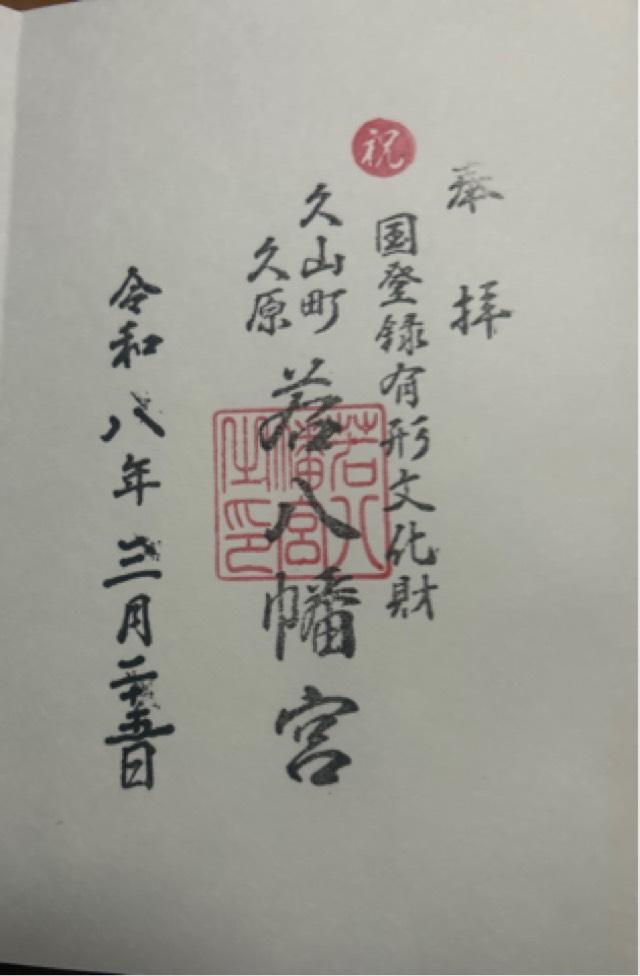 奉拝
祝
国登録有形文化財
久山町
久原
若八幡宮
若八
幡宮
之印
令和八年三月二十五日